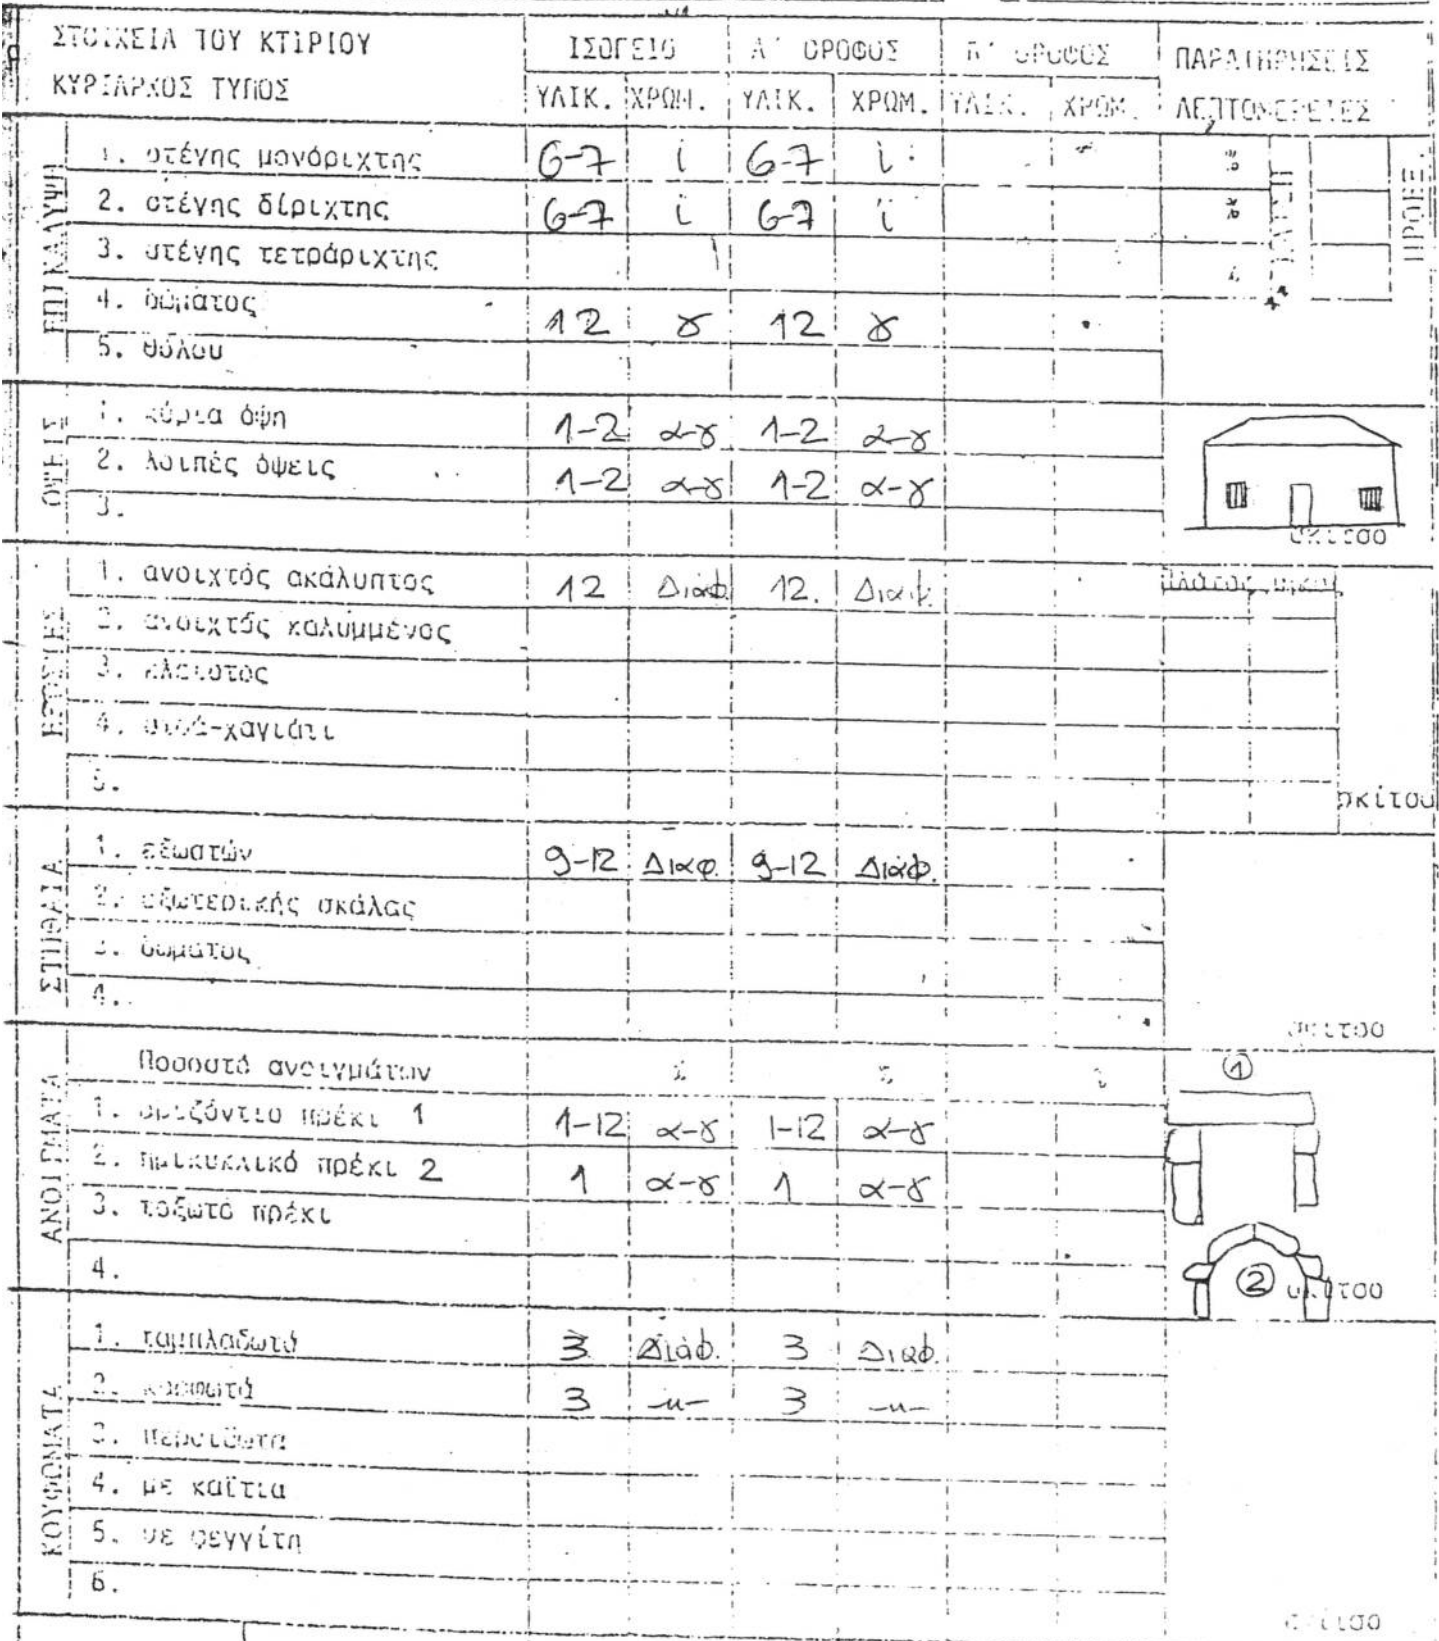 ΣΤΟΙΧΕΙΑ ΤΟΥ ΚΤΙΡΙΟΥ ΙΣΟΓΕΙΟ Α' ΟΡΟΦΟΣ Β' ΟΡΟΦΟΣ ΠΑΡΑΤΗΡΗΣΕΙΣ
ΚΥΡΙΑΡΧΟΣ ΤΥΠΟΣ ΥΛΙΚ. ΧΡΩΜ. ΥΛΙΚ. ΧΡΩΜ. ΥΛΙΚ. ΧΡΩΜ. ΛΕΠΤΟΜΕΡΕΙΕΣ
ΕΠΙΚΑΛΥΨΗ
1. στέγης μονόριχτης 6-7 i 6-7 i
2. στέγης δίριχτης 6-7 i 6-7 i
3. στέγης τετράριχτης
4. δώματος 12 γ 12 γ
5. θόλου
ΚΛΙΣΗ
ΠΡΟΕΞ.
ΟΨΕΙΣ
1. κύρια όψη 1-2 α-γ 1-2 α-γ
2. λοιπές όψεις 1-2 α-γ 1-2 α-γ
3.
σκίτσο
ΕΞΩΣΤΕΣ
1. ανοιχτός ακάλυπτος 12 Διάφ. 12. Διαφ. πλάτος μήκος
2. ανοιχτός καλυμμένος
3. κλειστός
4. στοά-χαγιάτι
5.
σκίτσο
ΣΤΗΘΑΙΑ
1. εξωστών 9-12 Διαφ. 9-12 Διαφ.
2. εξωτερικής σκάλας
3. δώματος
4.
σκίτσο
ΑΝΟΙΓΜΑΤΑ
Ποσοστό ανοιγμάτων % % % 1
1. οριζόντιο πρέκι 1 1-12 α-γ 1-12 α-γ
2. ημικυκλικό πρέκι 2 1 α-γ 1 α-γ
3. τοξωτό πρέκι
4. 2 σκίτσο
ΚΟΥΦΩΜΑΤΑ
1. ταμπλαδωτά 3 Διάφ. 3 Διαφ.
2. καρφωτά 3 -〃- 3 -〃-
3. περσιδωτα
4. με καΐτια
5. με φεγγίτη
6.
σκίτσο